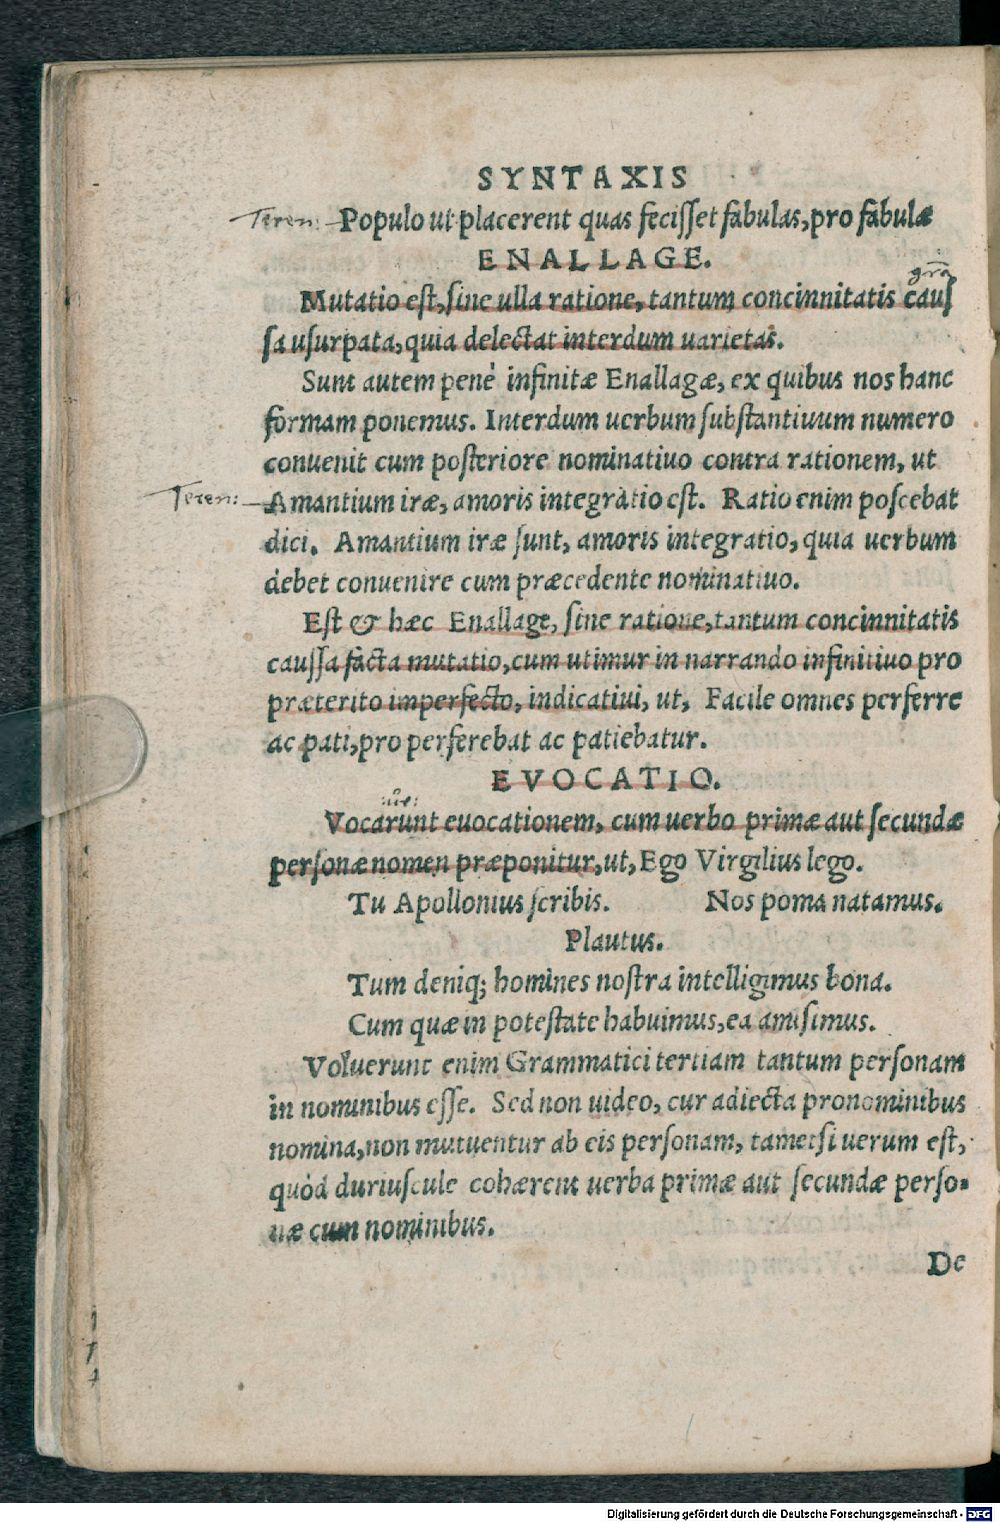 SYNTAXIS
Teren: Populo ut placerent quas fecisset fabulas, pro fabulæ
ENALLAGE.
grã
Mutatio est, sine ulla ratione, tantum concinnitatis cauſ
ſa uſurpata, quia delectat interdum uarietas.
Sunt autem penè infinitæ Enallagæ, ex quibus nos hanc
formam ponemus. Interdum uerbum ſubſtantiuum numero
conuenit cum poſteriore nominatiuo contra rationem, ut
Teren: Amantium iræ, amoris integratio eſt. Ratio enim poſcebat
dici. Amantium iræ ſunt, amoris integratio, quia uerbum
debet conuenire cum præcedente nominatiuo.
Eſt & hæc Enallage, ſine ratione, tantum concinnitatis
cauſſa facta mutatio, cum utimur in narrando infinitiuo pro
præterito imperfecto, indicatiui, ut, Facile omnes perferre
ac pati, pro perferebat ac patiebatur.
EVOCATIO.
Vocarunt euocationem, cum uerbo primæ aut ſecundæ
perſonæ nomen præponitur, ut, Ego Virgilius lego.
Tu Apollonius ſcribis. Nos poma natamus.
Plautus.
Tum deniq; homines noſtra intelligimus bona.
Cum quæ in poteſtate habuimus, ea amiſimus.
Voluerunt enim Grammatici tertiam tantum perſonam
in nominibus eſſe. Sed non uideo, cur adiecta pronominibus
nomina, non mutuentur ab eis perſonam, tametſi uerum eſt,
quòd duriuſcule cohærent uerba primæ aut ſecundæ perſo-
næ cum nominibus.
De
Digitalisierung gefördert durch die Deutsche Forschungsgemeinschaft - DFG